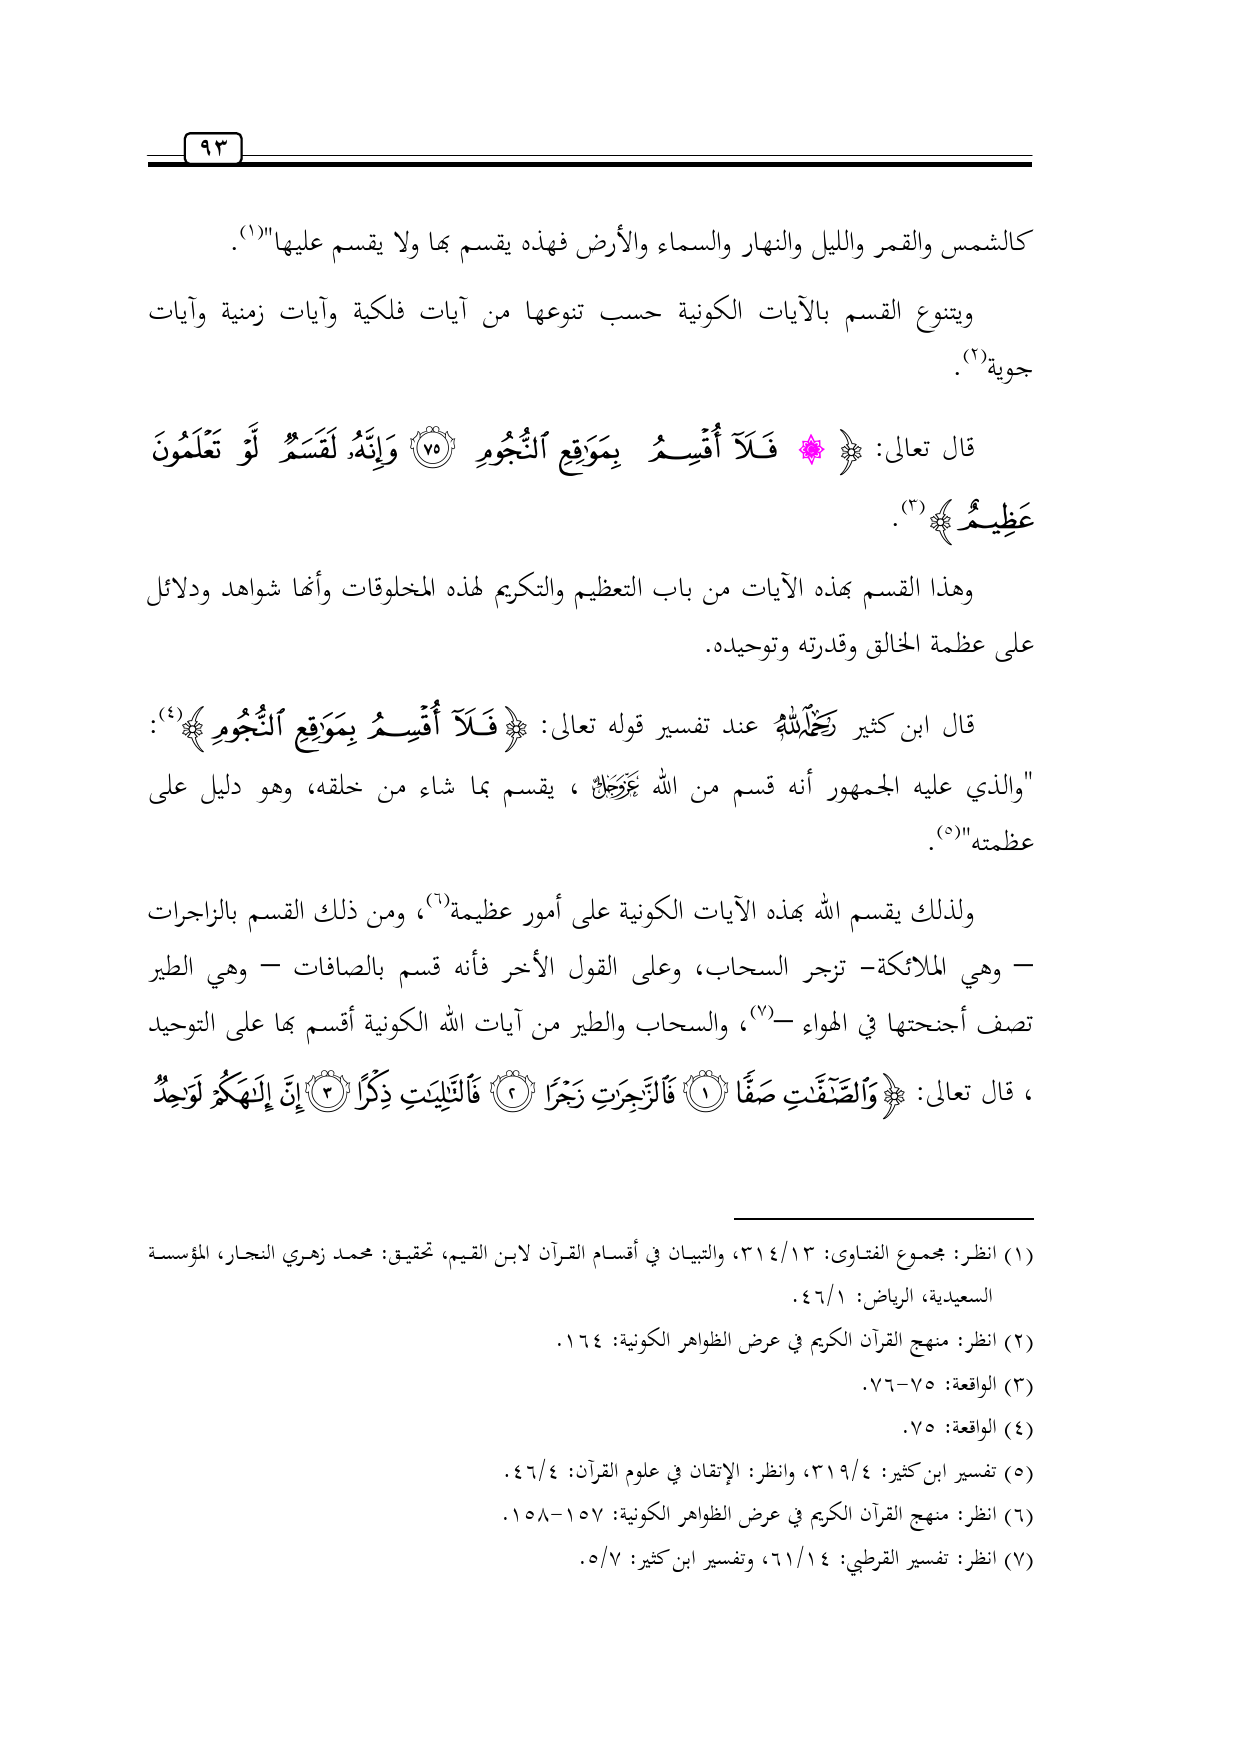 ٩٣
كالشمس والقمر والليل والنهار والسماء والأرض فهذه يقسم بها ولا يقسم عليها"(١).
ويتنوع القسم بالآيات الكونية حسب تنوعها من آيات فلكية وآيات زمنية وآيات
جوية(٢).
قال تعالى: ﴿ ۞ فَلَآ أُقْسِمُ بِمَوَٰقِعِ ٱلنُّجُومِ ٧٥ وَإِنَّهُۥ لَقَسَمٌ لَّوْ تَعْلَمُونَ
عَظِيمٌ ﴾(٣).
وهذا القسم بهذه الآيات من باب التعظيم والتكريم لهذه المخلوقات وأنها شواهد ودلائل
على عظمة الخالق وقدرته وتوحيده.
قال ابن كثير رَحِمَهُ ٱللَّهُ عند تفسير قوله تعالى: ﴿ فَلَآ أُقْسِمُ بِمَوَٰقِعِ ٱلنُّجُومِ ﴾(٤):
"والذي عليه الجمهور أنه قسم من الله عَزَّوَجَلَّ ، يقسم بما شاء من خلقه، وهو دليل على
عظمته"(٥).
ولذلك يقسم الله بهذه الآيات الكونية على أمور عظيمة(٦)، ومن ذلك القسم بالزاجرات
– وهي الملائكة– تزجر السحاب، وعلى القول الأخر فأنه قسم بالصافات – وهي الطير
تصف أجنحتها في الهواء –(٧)، والسحاب والطير من آيات الله الكونية أقسم بها على التوحيد
، قال تعالى: ﴿ وَٱلصَّٰٓفَّٰتِ صَفًّا ١ فَٱلزَّٰجِرَٰتِ زَجْرًا ٢ فَٱلتَّٰلِيَٰتِ ذِكْرًا ٣ إِنَّ إِلَٰهَكُمْ لَوَٰحِدٌ
(١) انظر: مجموع الفتاوى: ٣١٤/١٣، والتبيان في أقسام القرآن لابن القيم، تحقيق: محمد زهري النجار، المؤسسة
السعيدية، الرياض: ٤٦/١.
(٢) انظر: منهج القرآن الكريم في عرض الظواهر الكونية: ١٦٤.
(٣) الواقعة: ٧٥–٧٦.
(٤) الواقعة: ٧٥.
(٥) تفسير ابن كثير: ٣١٩/٤، وانظر: الإتقان في علوم القرآن: ٤٦/٤.
(٦) انظر: منهج القرآن الكريم في عرض الظواهر الكونية: ١٥٧–١٥٨.
(٧) انظر: تفسير القرطبي: ٦١/١٤، وتفسير ابن كثير: ٥/٧.